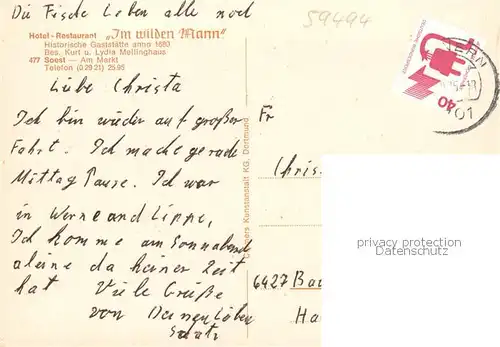 Die Fische Leben alle noch
59494
Hotel - Restaurant „Im wilden Mann"
Historische Gaststätte anno 1680
Bes. Kurt u. Lydia Mellinghaus
477 Soest — Am Markt
Telefon (0 29 21) 25 95
Liebe Christa
Ich bin wieder auf großer
Fahrt. Ich mache gerade
Mittag Pause. Ich war
in Werne and Lippe,
Ich komme am Sonnabend
aleine da keiner Zeit
hat Viele Grüße
von Deinen Lieben
Cramers Kunstanstalt KG, Dortmund
Fr
Chris
6427 Bad
Ha
40
privacy protection
Datenschutz